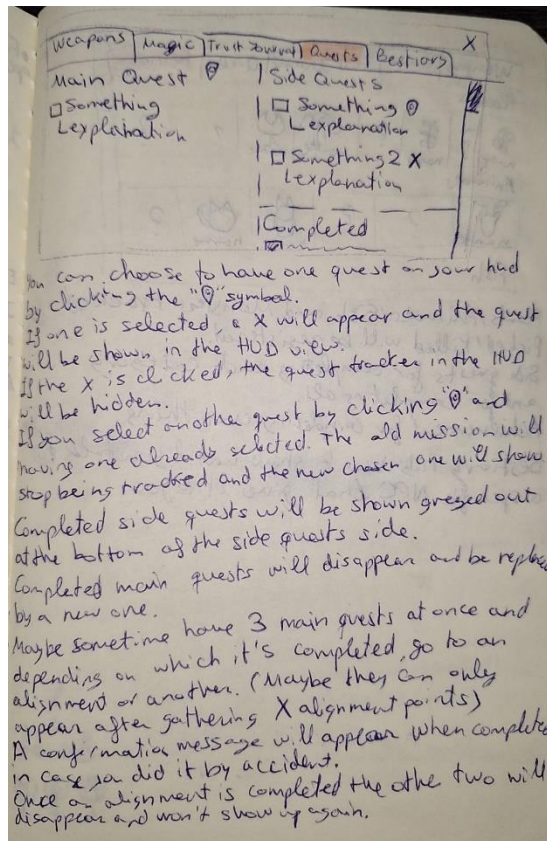 Weapons | Magic | Trust Journal | Quests | Bestiary X
Main Quest
Something
explanation
Side Quests
Something
explanation
Something 2 X
explanation
Completed
You can choose to have one quest on your hud
by clicking the " " symbol.
If one is selected, a X will appear and the quest
will be shown in the HUD view.
If the X is clicked, the quest tracker in the HUD
will be hidden.
If you select another quest by clicking " " and
having one already selected. The old mission will
stop being tracked and the new chosen one will show
Completed side quests will be shown greyed out
at the bottom of the side quests side.
Completed main quests will disappear and be replaced
by a new one.
Maybe sometime have 3 main quests at once and
depending on which it's completed, go to an
alignment or another. (Maybe they can only
appear after gathering X alignment points)
A confirmation message will appear when complete
in case you did it by accident.
Once an alignment is completed the othe two will
disappear and won't show up again.